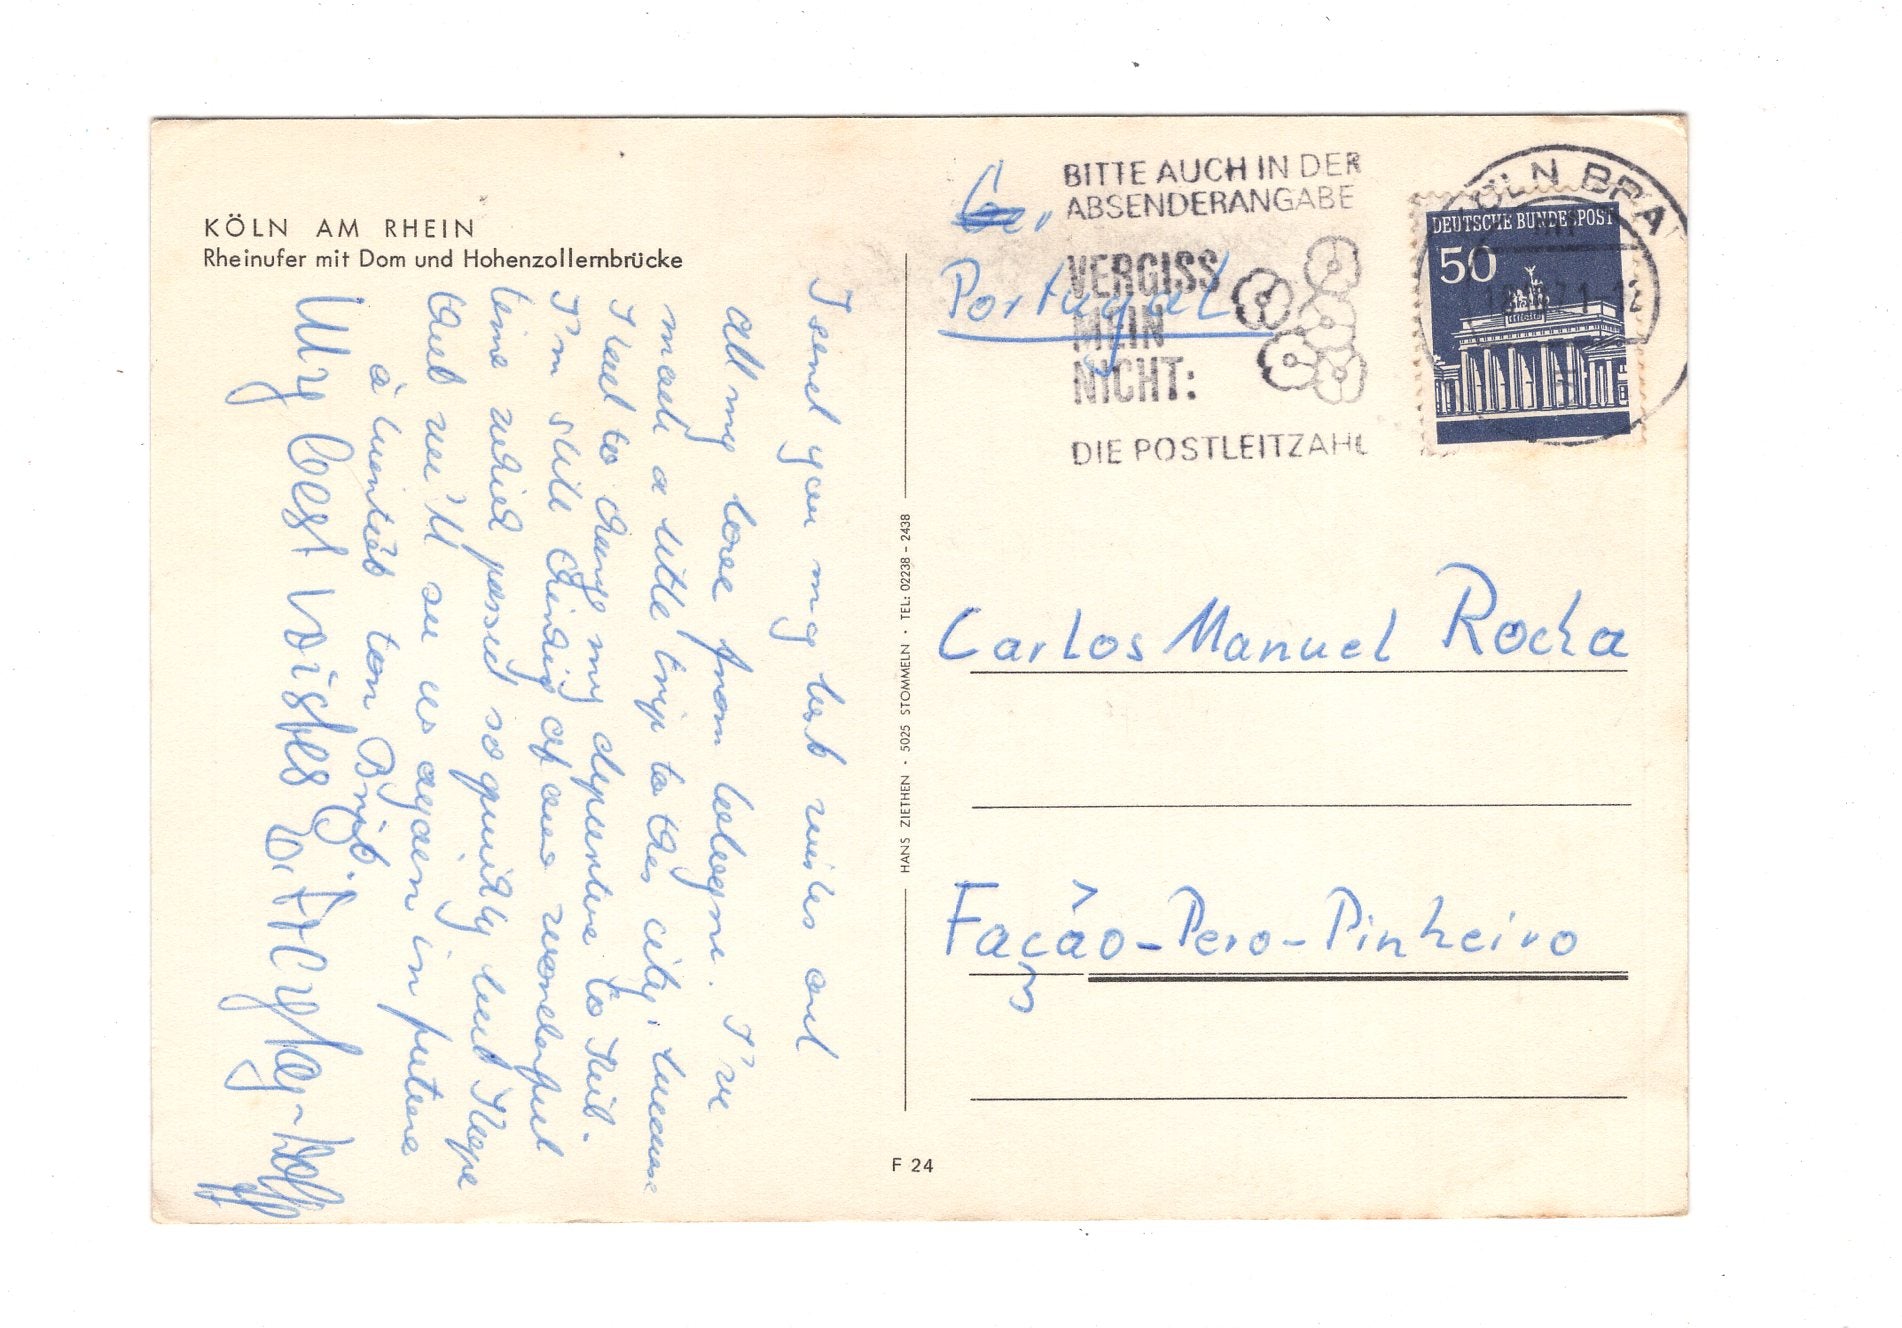 KÖLN AM RHEIN
Rheinufer mit Dom und Hohenzollernbrücke
I send you my best wishes and
all my love from Cologne. I've
made a little trip to this city, because
I had to change my
I'm still thinking of our wonderful
time which passed so quickly but I hope
that we'll see us again in future
à bientôt ton
My best wishes
HANS ZIETHEN · 5025 STOMMELN · TEL: 02238 - 2438
F 24
BITTE AUCH IN DER
ABSENDERANGABE
VERGISS
MEIN
NICHT:
DIE POSTLEITZAHL
DEUTSCHE BUNDESPOST
50
KÖLN BRA
71-12
Portugal
Carlos Manuel Rocha
Façâo-Pero-Pinheiro